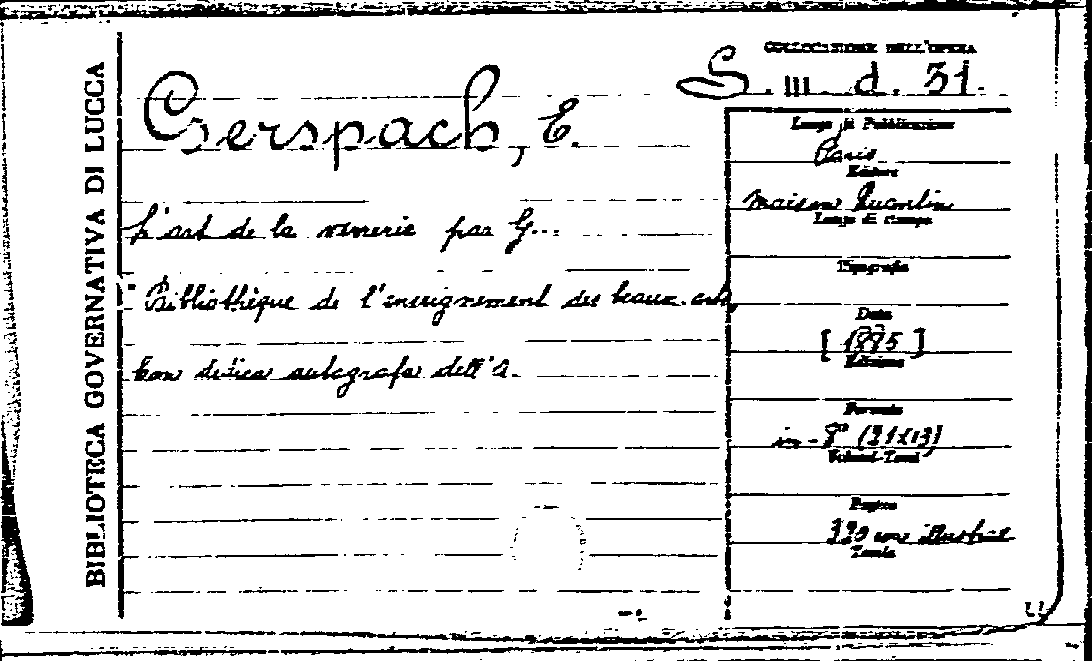 BIBLIOTECA GOVERNATIVA DI LUCCA
COLLOCAZIONE DELL'OPERA
S. III. d. 31.
Gerspach, E.
L'art de la verrerie par G...
"Bibliothèque de l'enseignement des beaux-arts,
Con dedica autografa dell'A.
Luogo di Pubblicazione
Paris
Editore
Maison Quantin
Luogo di stampa
Tipografia
Data
[1885]
Edizione
Formato
in-8° (21x13)
Volumi-Tomi
Pagine
320 con illustraz
Tavole